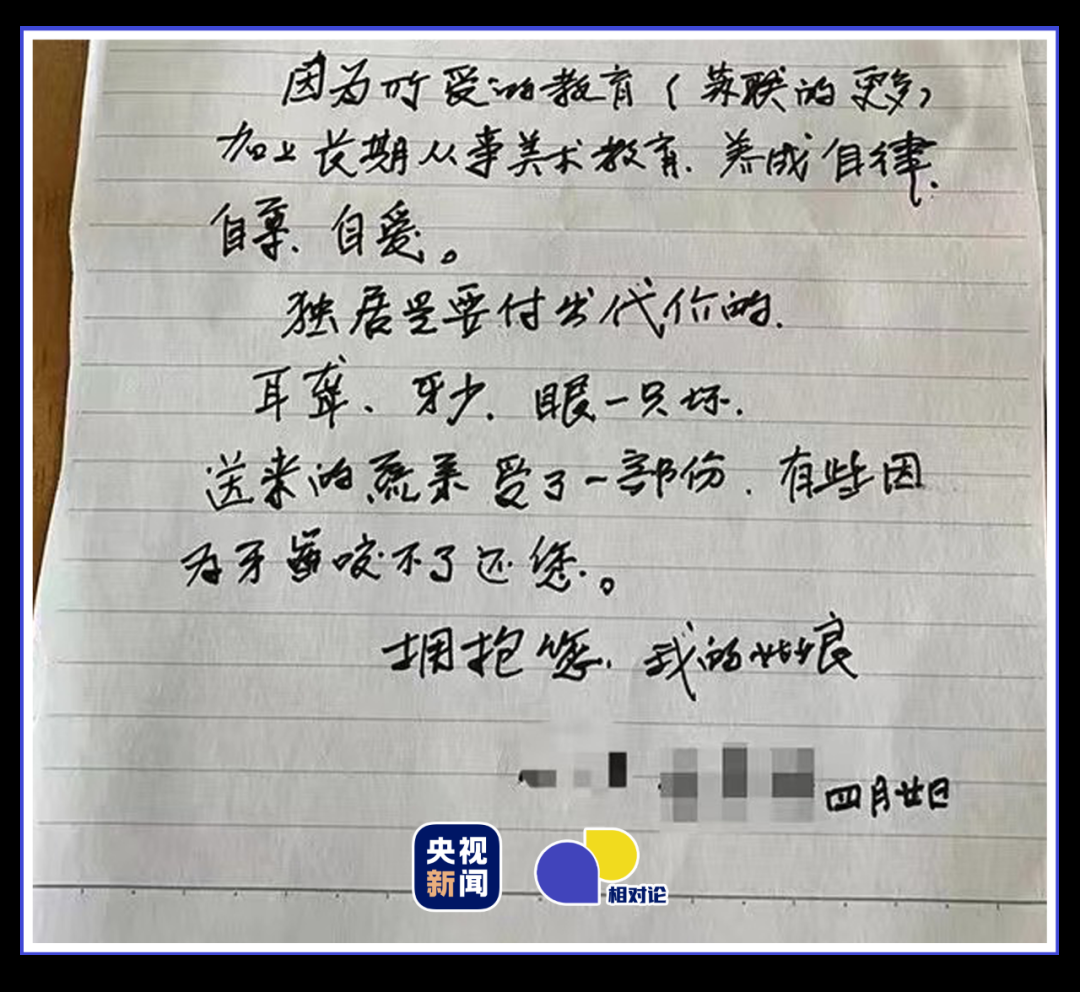 因为所受的教育（苏联的更多）
加上长期从事美术教育、养成自律、
自尊、自爱。
独居是要付出代价的、
耳聋、牙少、眼一只坏、
送来的蔬菜受了一部份、有些因
为牙齿咬不了还您。
拥抱您、我的姑娘
四月廿日
央视
新闻
相对论